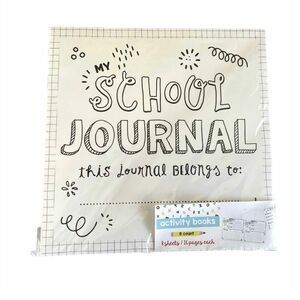 MY
SCHOOL
JOURNAL
this Journal Belongs to:
activity books
8 count
8 sheets / 16 pages each